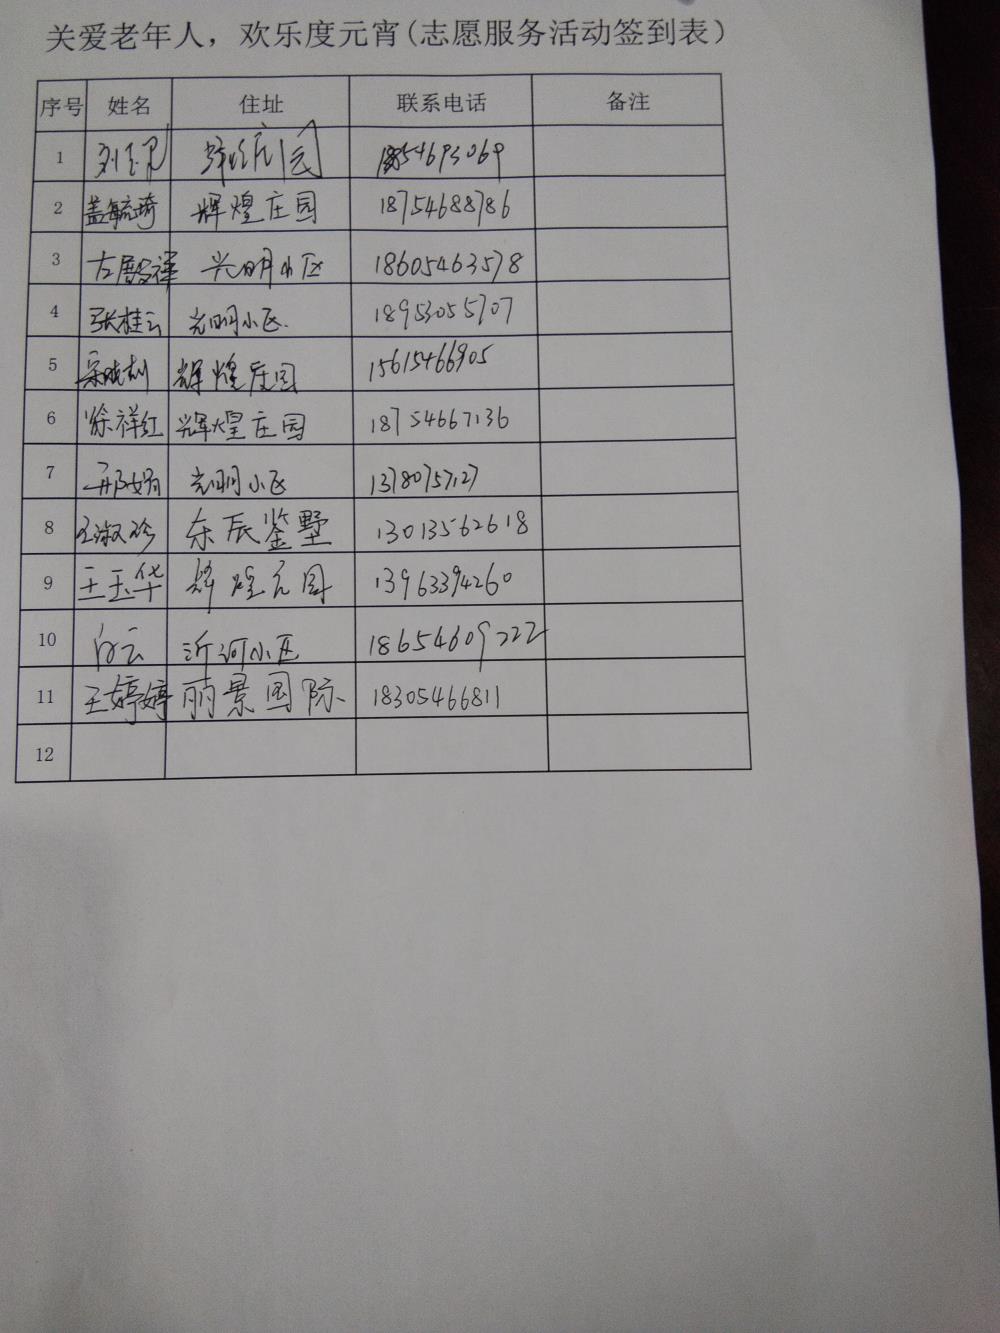 关爱老年人，欢乐度元宵(志愿服务活动签到表）
序号 姓名 住址 联系电话 备注
1
2 盖毓琦 辉煌庄园 18754688786
3 兴明小区 18605463578
4 张桂云 光明小区. 18953055707
5 辉煌庄园 15615466905
6 徐祥红 辉煌庄园 18754667136
7 邢娟 光明小区
8 王淑珍 东辰鉴墅 13013562618
9 王玉华 辉煌庄园 13963394260
10 白云 沂河小区 18654609222
11 王婷婷 丽景国际 18305466811
12